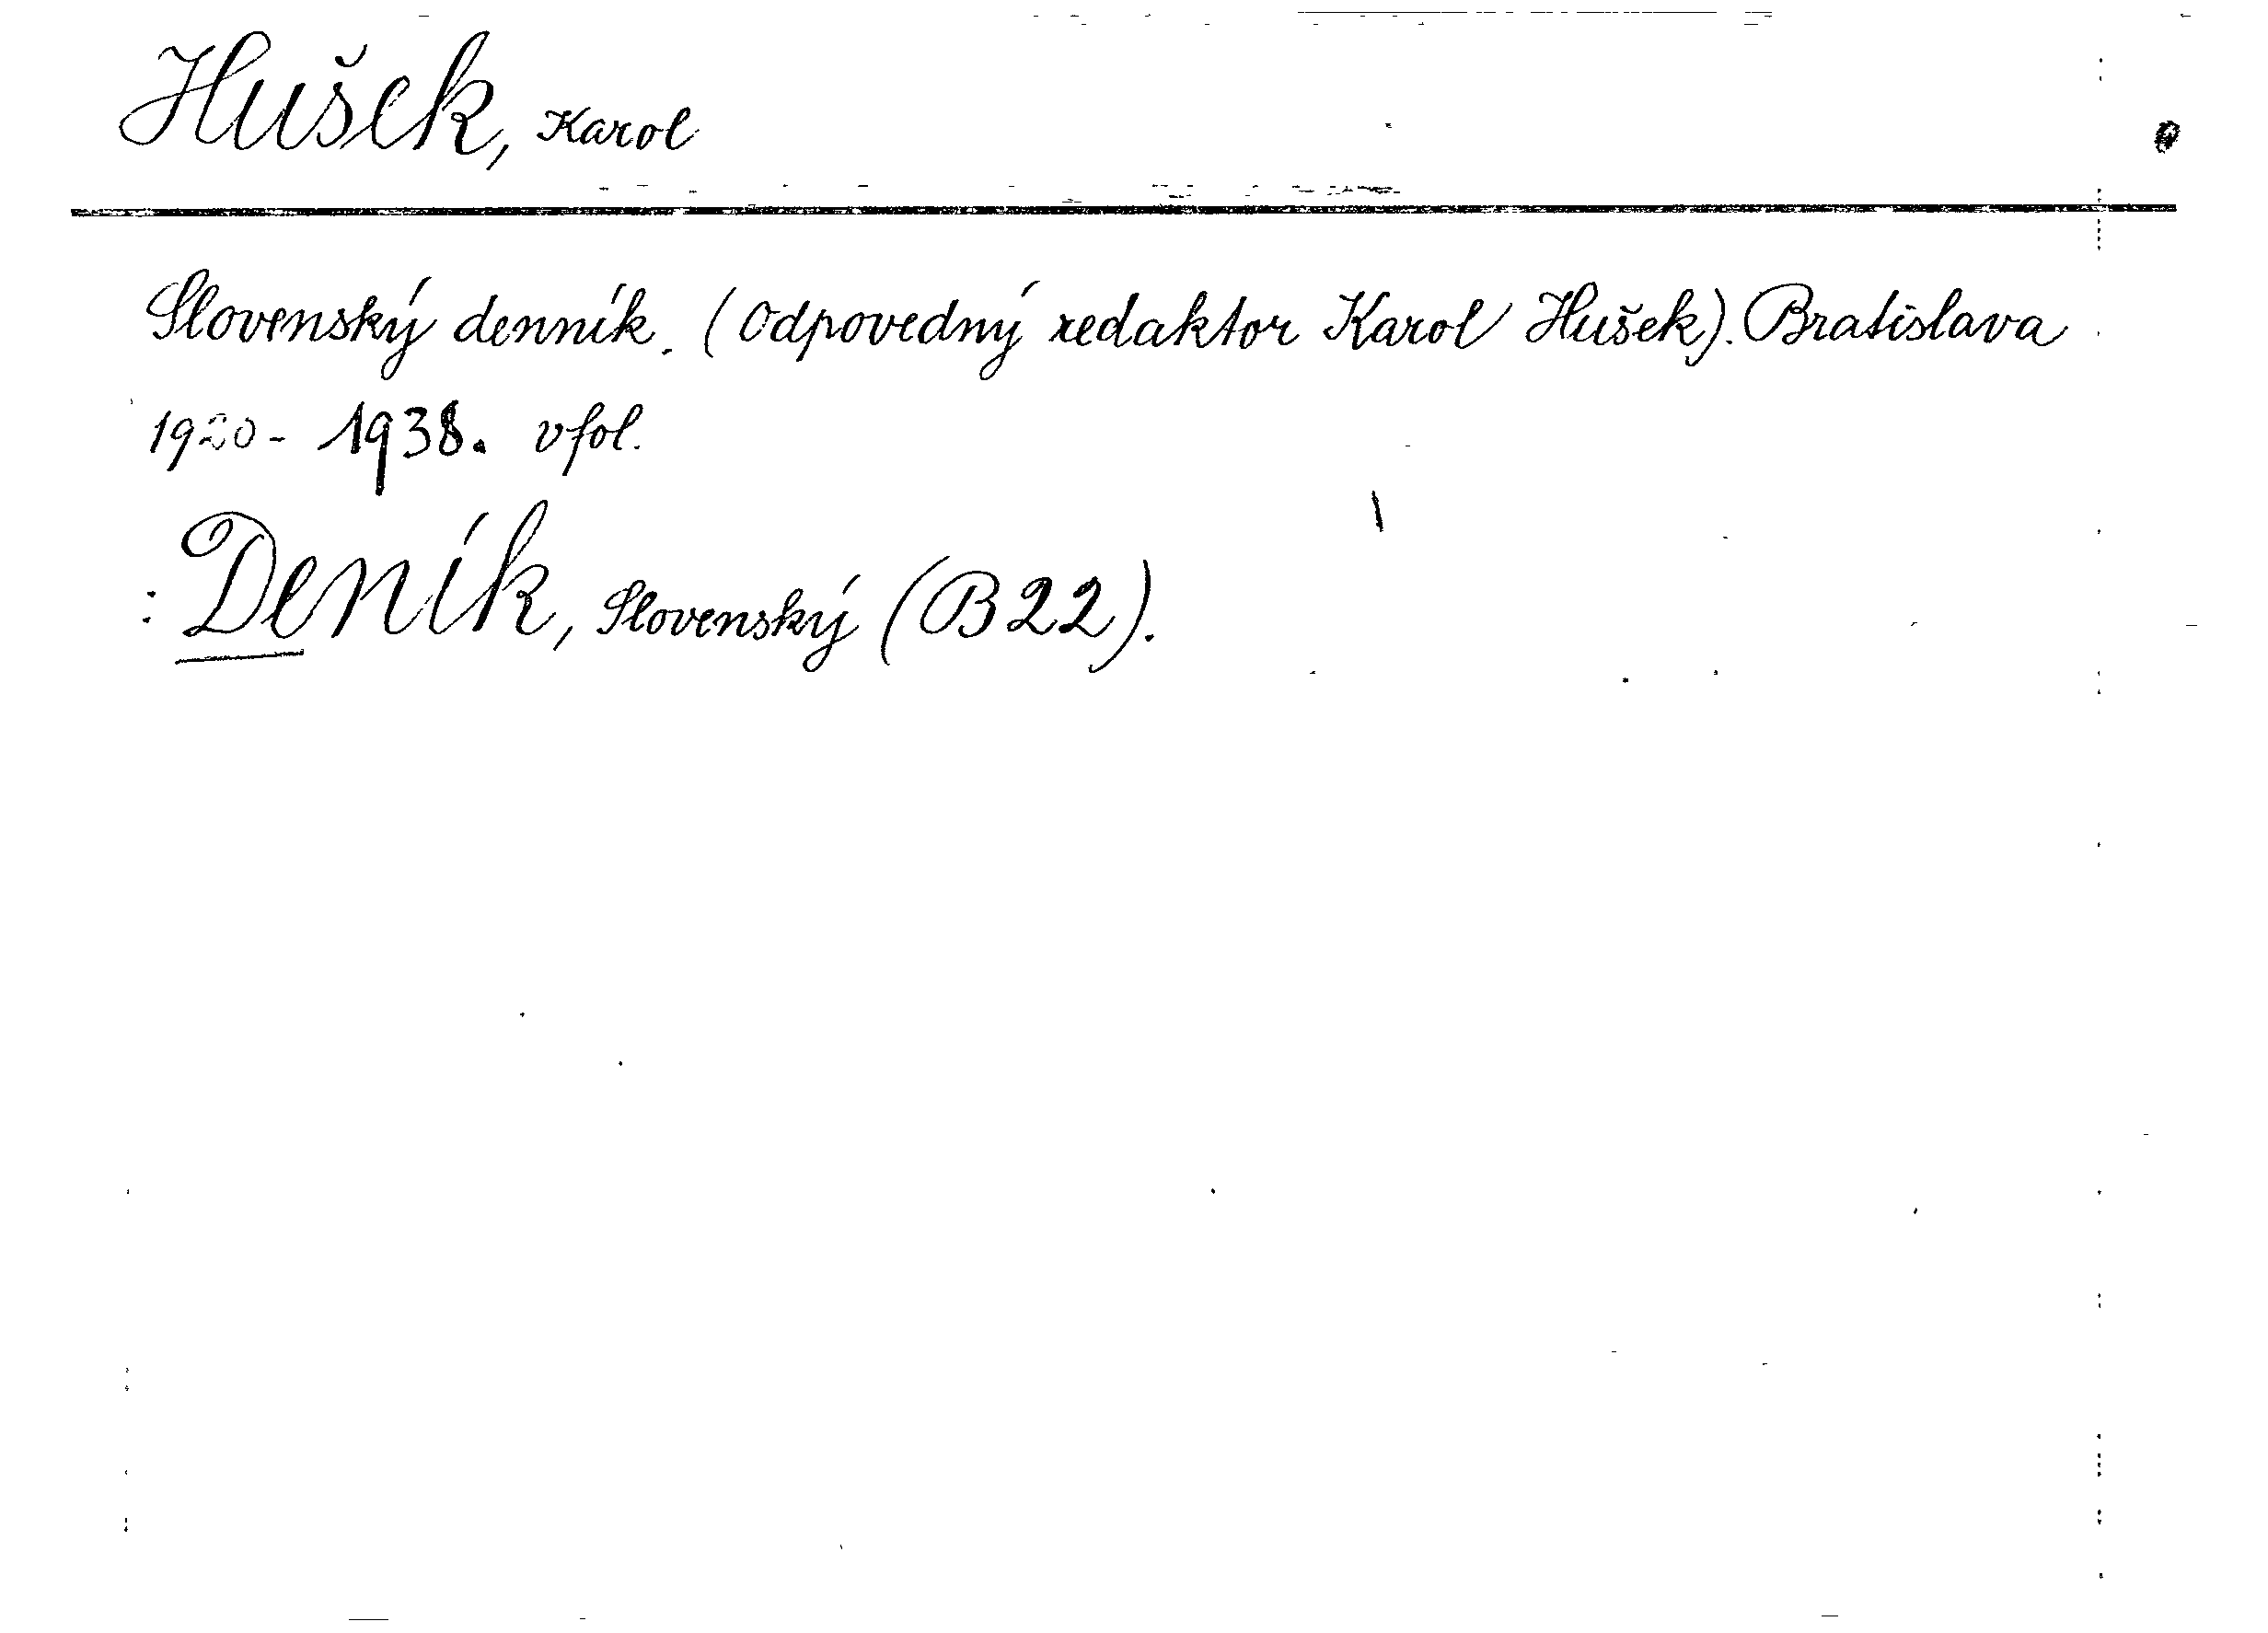 Hušek, Karol
Slovenský denník. (Odpovedný redaktor Karol Hušek). Bratislava
1920- 1938. vfol.
: Deník, Slovenský (B22).